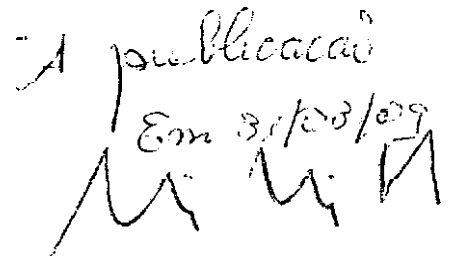 À publicação
Em 31/03/09